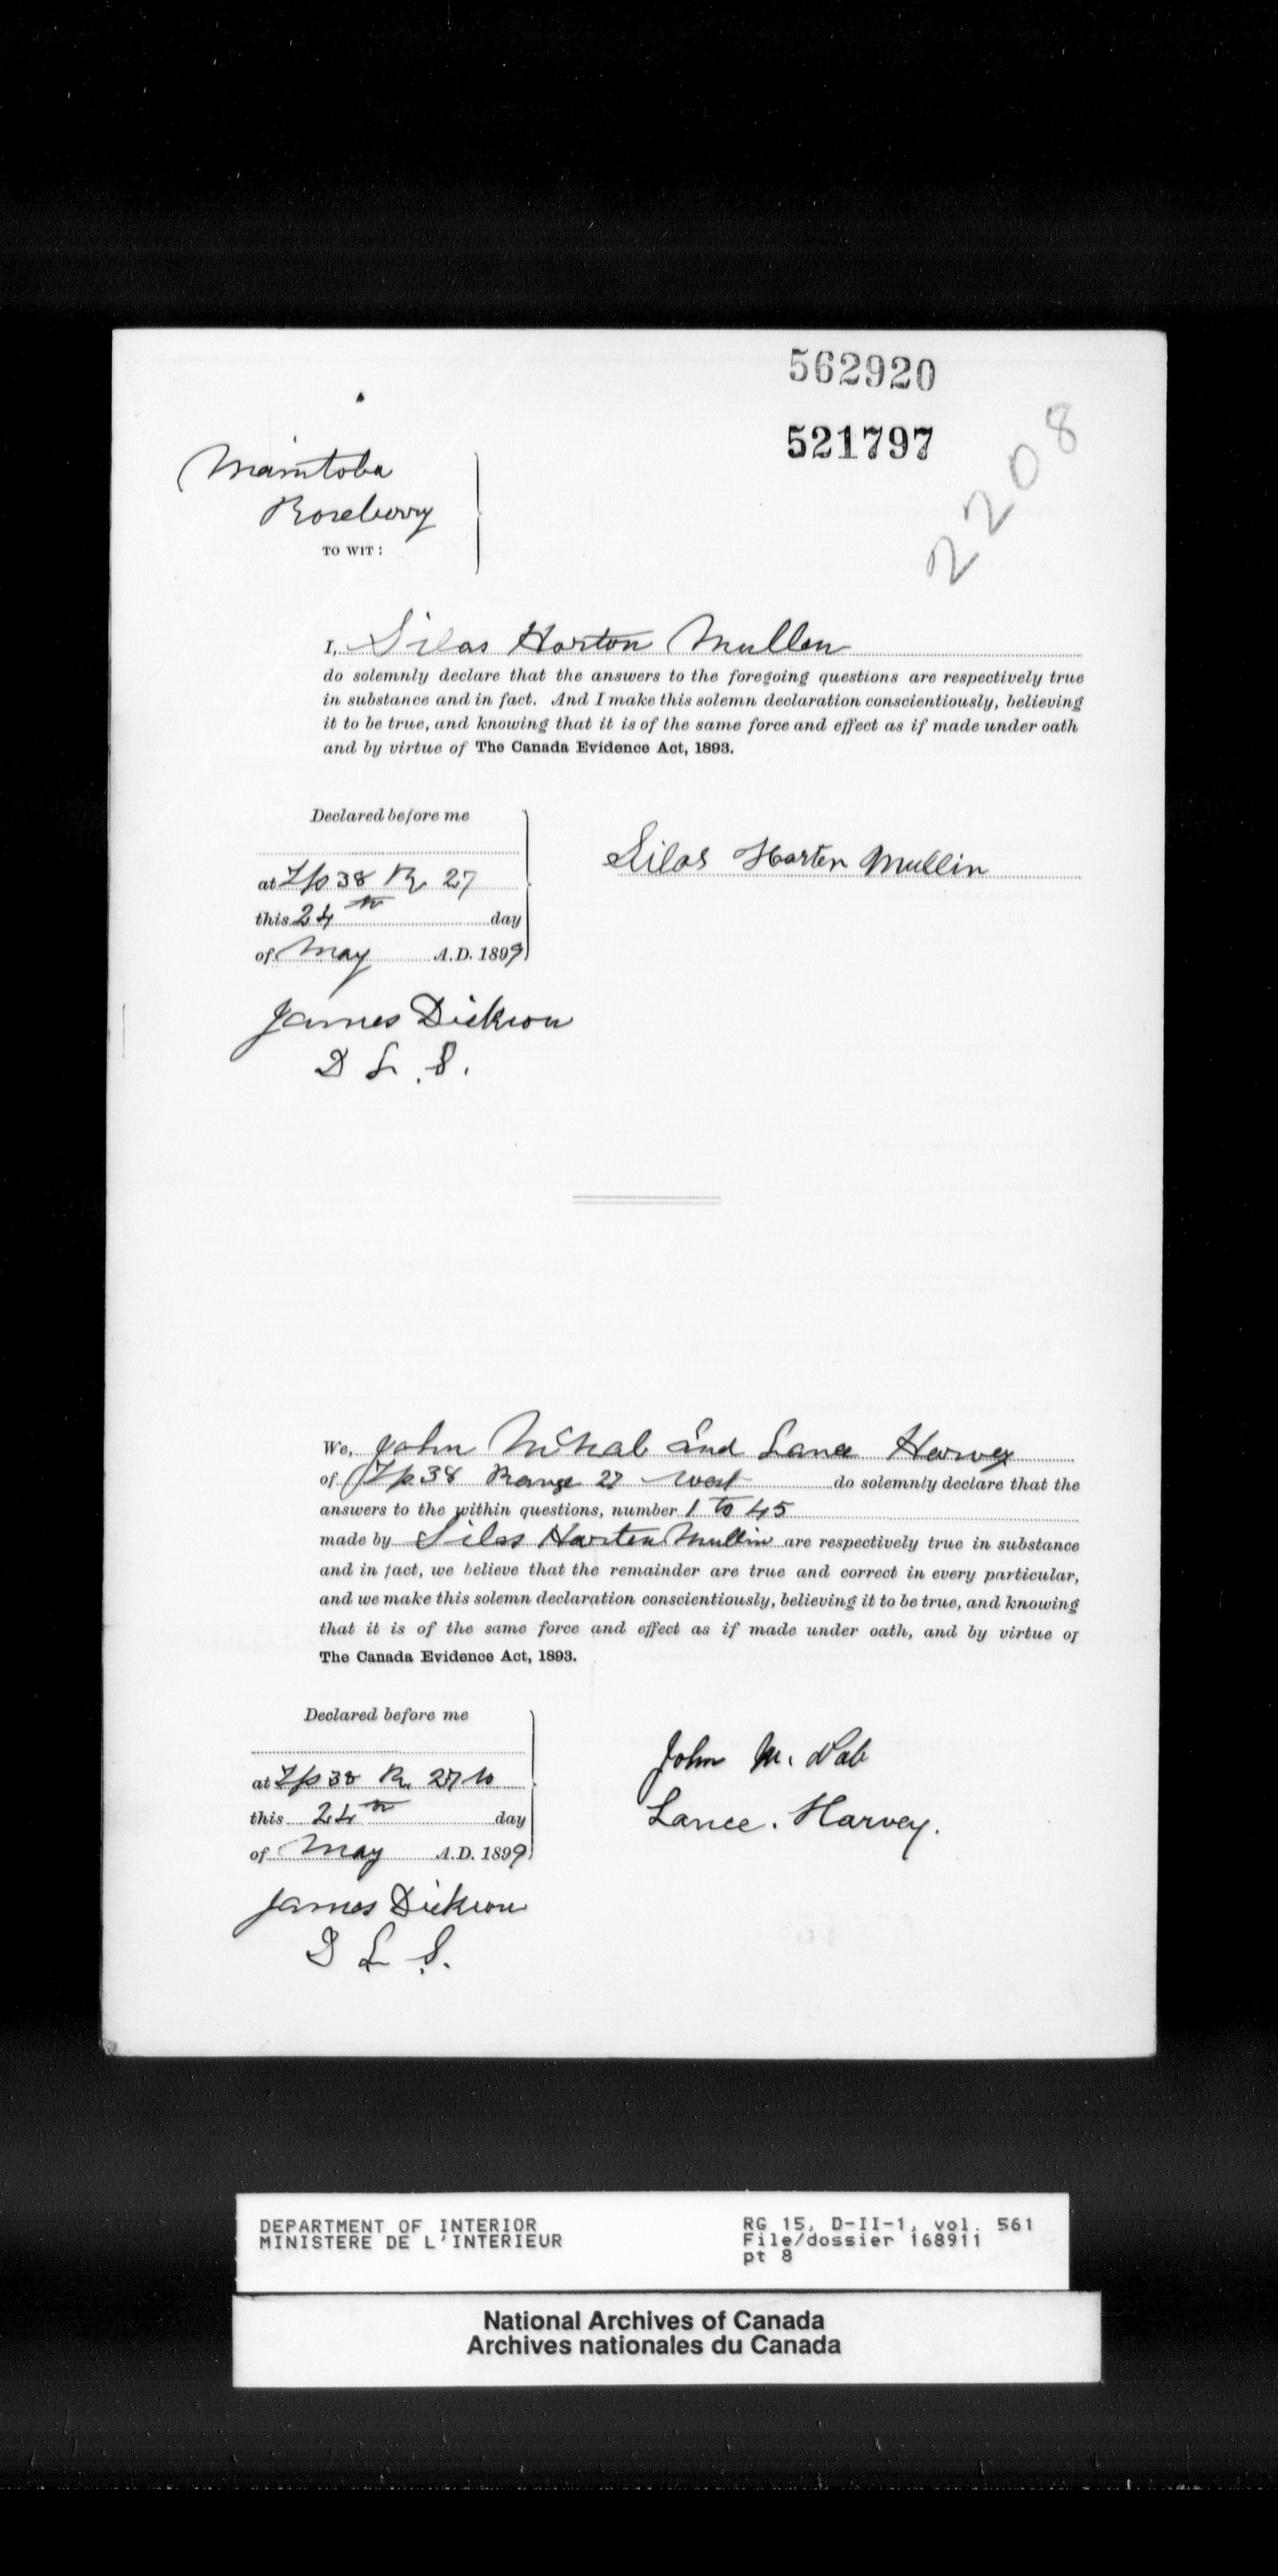 562920
521797
2208
Manitoba
Roseberry
TO WIT:
I, Silas Horton Mullen
do solemnly declare that the answers to the foregoing questions are respectively true
in substance and in fact. And I make this solemn declaration conscientiously, believing
it to be true, and knowing that it is of the same force and effect as if made under oath
and by virtue of The Canada Evidence Act, 1893.
Declared before me
at Tp 38 R 27
this 24th day
of May A.D. 1899
Silas Horten Mullin
James Dickson
D L. S.
We, John McNab and Lance Harvey
of Tp 38 Range 27 West do solemnly declare that the
answers to the within questions, number 1 to 45
made by Silas Horten Mullin are respectively true in substance
and in fact, we believe that the remainder are true and correct in every particular,
and we make this solemn declaration conscientiously, believing it to be true, and knowing
that it is of the same force and effect as if made under oath, and by virtue of
The Canada Evidence Act, 1893.
Declared before me
at Tp 38 R. 27 W
this 24th day
of May A.D. 1899
John Mc Nab
Lance. Harvey.
James Dickson
D L S.
DEPARTMENT OF INTERIOR
MINISTERE DE L'INTERIEUR
RG 15, D-II-1, vol. 561
File/dossier 168911
pt 8
National Archives of Canada
Archives nationales du Canada